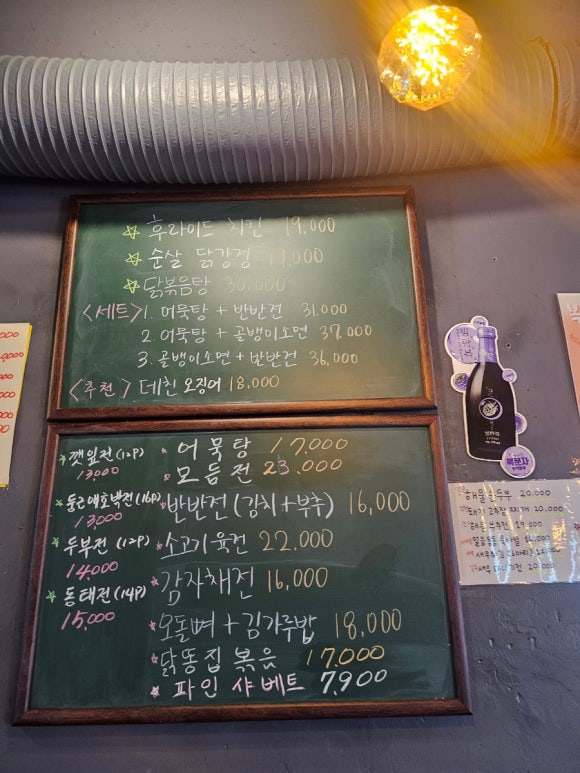 ☆ 후라이드 치킨 19,000
☆ 순살 닭강정
☆ 닭볶음탕 30,000
<세트> 1. 어묵탕 + 반반전 31,000
2. 어묵탕 + 골뱅이소면 37,000
3. 골뱅이소면 + 반반전 36,000
<추천> 데친 오징어 18,000
☆ 깻잎전 (12P) 13,000
☆ 둥근애호박전 (16P) 13,000
☆ 두부전 (12P) 14,000
☆ 동태전 (14P) 15,000
☆ 어묵탕 17,000
☆ 모듬전 23,000
☆ 반반전 (김치+부추) 16,000
☆ 소고기육전 22,000
☆ 감자채전 16,000
☆ 오돌뼈 + 김가루밥 18,000
☆ 닭똥집 볶음 17,000
☆ 파인 샤베트 7,900
복분자
20,000
고추장찌개 20,000
20,000